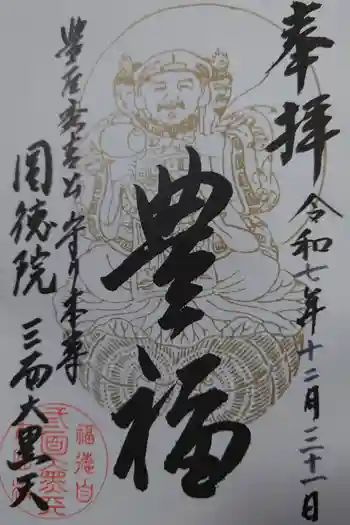 奉拝
令和七年十二月三十一日
豊福
豊臣秀吉公守り本尊
圓徳院 三面大黒天